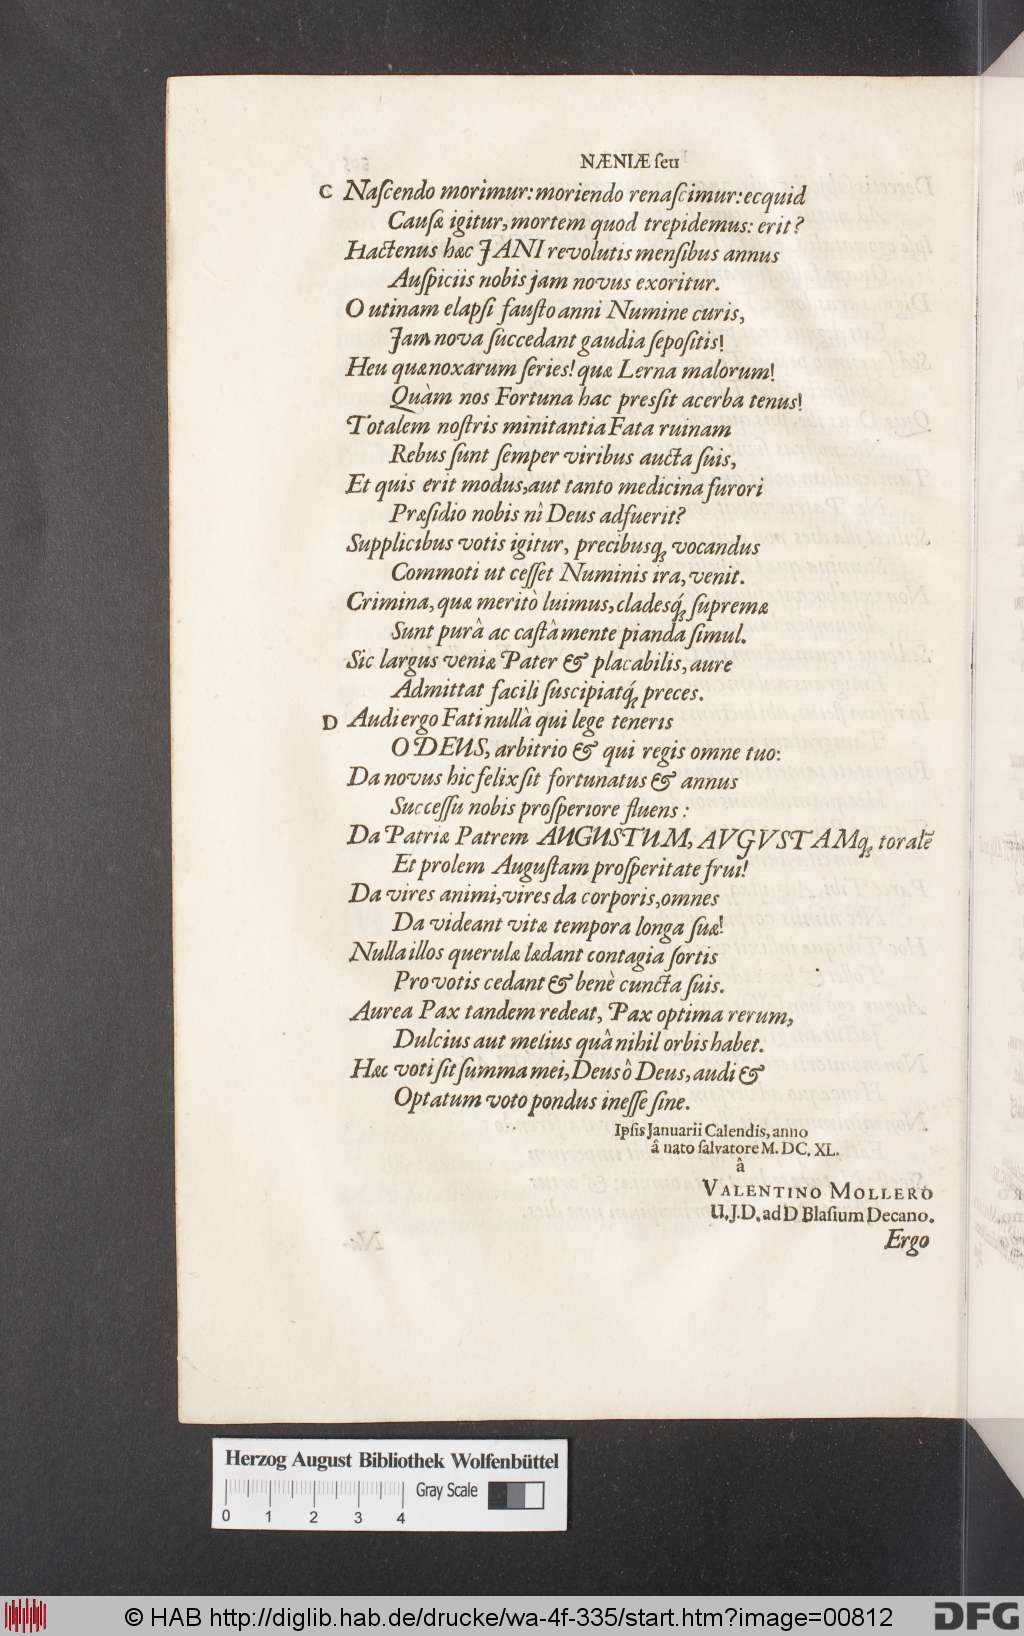 NÆNIÆ ſeu
C Naſcendo morimur: moriendo renaſcimur: ecquid
Cauſæ igitur, mortem quod trepidemus: erit?
Hactenus hæc JANI revolutis menſibus annus
Auſpiciis nobis jam novus exoritur.
O utinam elapſi fauſto anni Numine curis,
Jam nova ſuccedant gaudia ſepoſitis!
Heu quæ noxarum ſeries! quæ Lerna malorum!
Quàm nos Fortuna hac presſit acerba tenus!
Totalem noſtris minitantia Fata ruinam
Rebus ſunt ſemper viribus aucta ſuis,
Et quis erit modus, aut tanto medicina furori
Præſidio nobis nî Deus adfuerit?
Supplicibus votis igitur, precibusq́; vocandus
Commoti ut ceſſet Numinis ira, venit.
Crimina, quæ meritò luimus, cladesq́; ſupremæ
Sunt purâ ac caſtâ mente pianda ſimul.
Sic largus veniæ Pater & placabilis, aure
Admittat facili ſuscipiatq́; preces.
D Audi ergo Fati nullâ qui lege teneris
O DEUS, arbitrio & qui regis omne tuo:
Da novus hic felix ſit fortunatus & annus
Succeſſu nobis proſperiore fluens:
Da Patriæ Patrem AUGUSTUM, AVGVSTAMq; toralẽ
Et prolem Auguſtam proſperitate frui!
Da vires animi, vires da corporis, omnes
Da videant vitæ tempora longa ſuæ!
Nulla illos querulæ lædant contagia ſortis
Pro votis cedant & benè cuncta ſuis.
Aurea Pax tandem redeat, Pax optima rerum,
Dulcius aut melius quâ nihil orbis habet.
Hæc voti ſit ſumma mei, Deus ô Deus, audi &
Optatum voto pondus ineſſe ſine.
Ipſis Januarii Calendis, anno
â nato ſalvatore M. DC. XL.
â
VALENTINO MOLLERO
U. J. D. ad D Blaſium Decano.
Ergo
Herzog August Bibliothek Wolfenbüttel
Gray Scale
0 1 2 3 4
© HAB http://diglib.hab.de/drucke/wa-4f-335/start.htm?image=00812
DFG